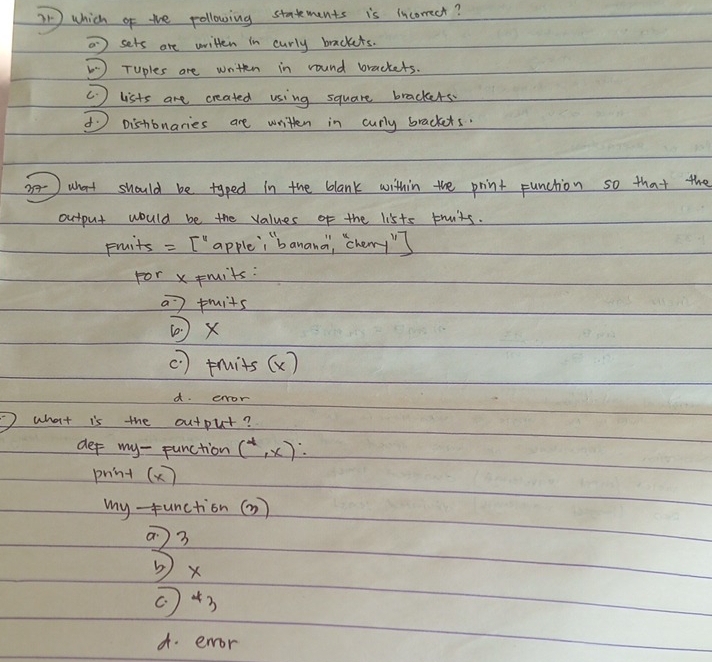 31) which of the following statements is incorrect?
a) sets are written in curly brackets.
b) Tuples are written in round brackets.
c) lists are created using square brackets.
d.) Distibnaries are written in curly brackets.
32) what should be typed in the blank within the print function so that the
output would be the values of the lists fruits.
fruits = ["apple", "banana", "cherry"]
for x fruits:
a) fruits
b) x
c) fruits (x)
d. error
) what is the output?
def my- function (*, x):
print (x)
my-function (3)
a) 3
b) x
c) *3
d. error